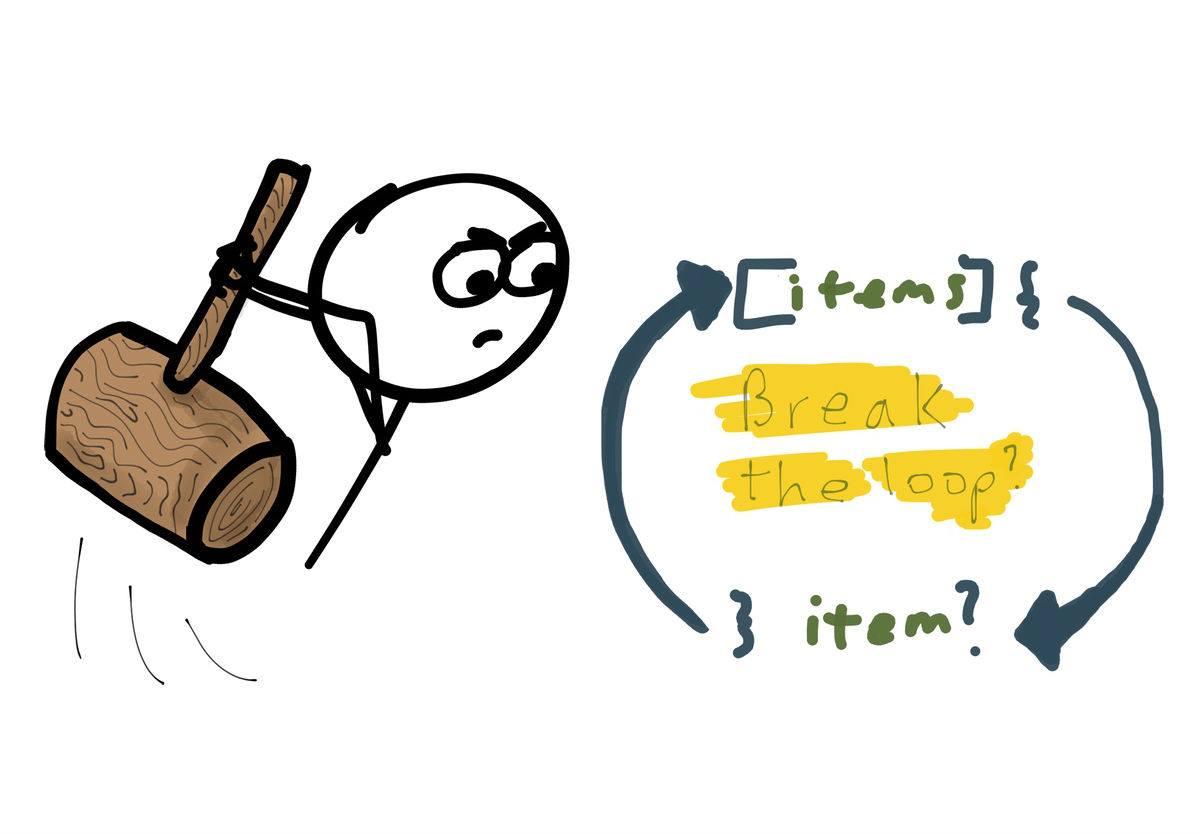 [items] {
Break
the loop?
} item?